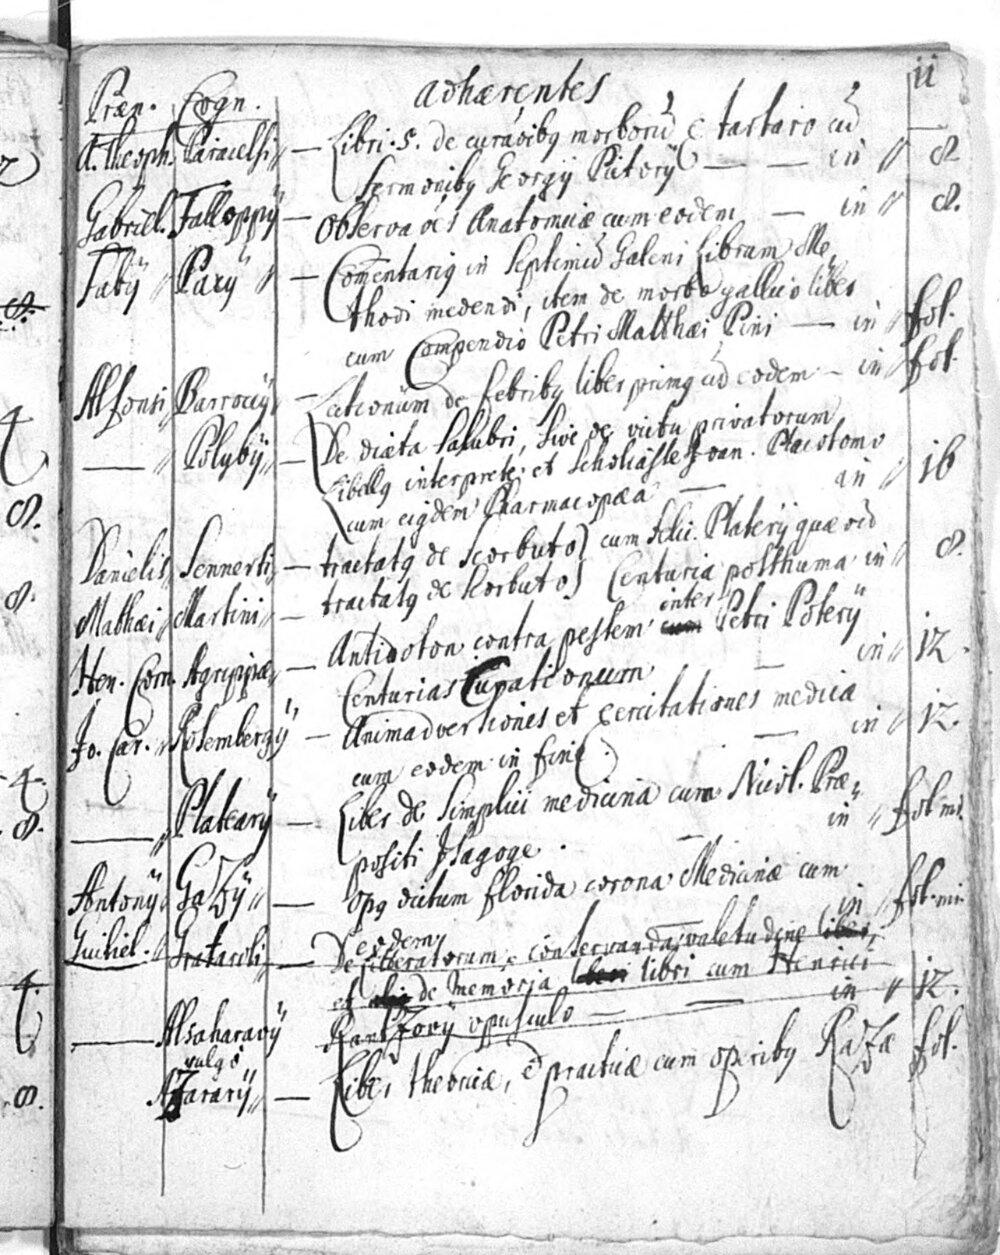 ii
Præn. Cogn. adhærentes
A. Theoph. Paracelsi, — Libri. 5. de curãoibq morborũ è tartaro cũ
Sermonibq Georgij Pictorij — — in 8
Gabriel. Falloppij — Observaões Anatomicæ cum eodem — in 8.
Fabij Pacij — Comentariq in septimũ Galeni Librum Me„
thodi medendi, item de morbo gallico liber
cum Compendio Petri Matthæi Pini — in fol.
Alfonsi Barrocij — Lectionum de febribq liber primq cũ eodem — in fol.
— Polybij — De diæta salubri, sive de victu privatorum
Libellq interprete et Scholiaste Joan. Placotomo
cum eiqdem Pharmacopæa — in 16
Danielis Sennerti — tractatq de Scorbuto cum Felic. Platerij quæ oĩ
Mathæi Martini — tractatq de Scorbuto Centuria posthuma in 8.
inter
Hen. Corn. Agrippæ — Antidoton contra pestem cum Petri Poterij
Centurias Cupationum — in 12.
Jo. Car. Rosembergij — Animadversiones et exercitationes medica
cum eodem in fine — in 12.
— Platearij — Liber de simplici medicina cum Nicol. Præ„
positi Isagoge. — in fol. mi.
Antonij Gazij — Opq dictum florida corona Medicinæ cum
eodem — in fol. mi.
Guiliel. Grataroli — De litteratorum conservanda valetudine liber,
et de memoria libri cum Henrici
Rantzovij opusculo — — in 12.
— Alsaharavij
vulgo
Azararij — Liber theoricæ, è practicæ cum operibq Razæ fol.